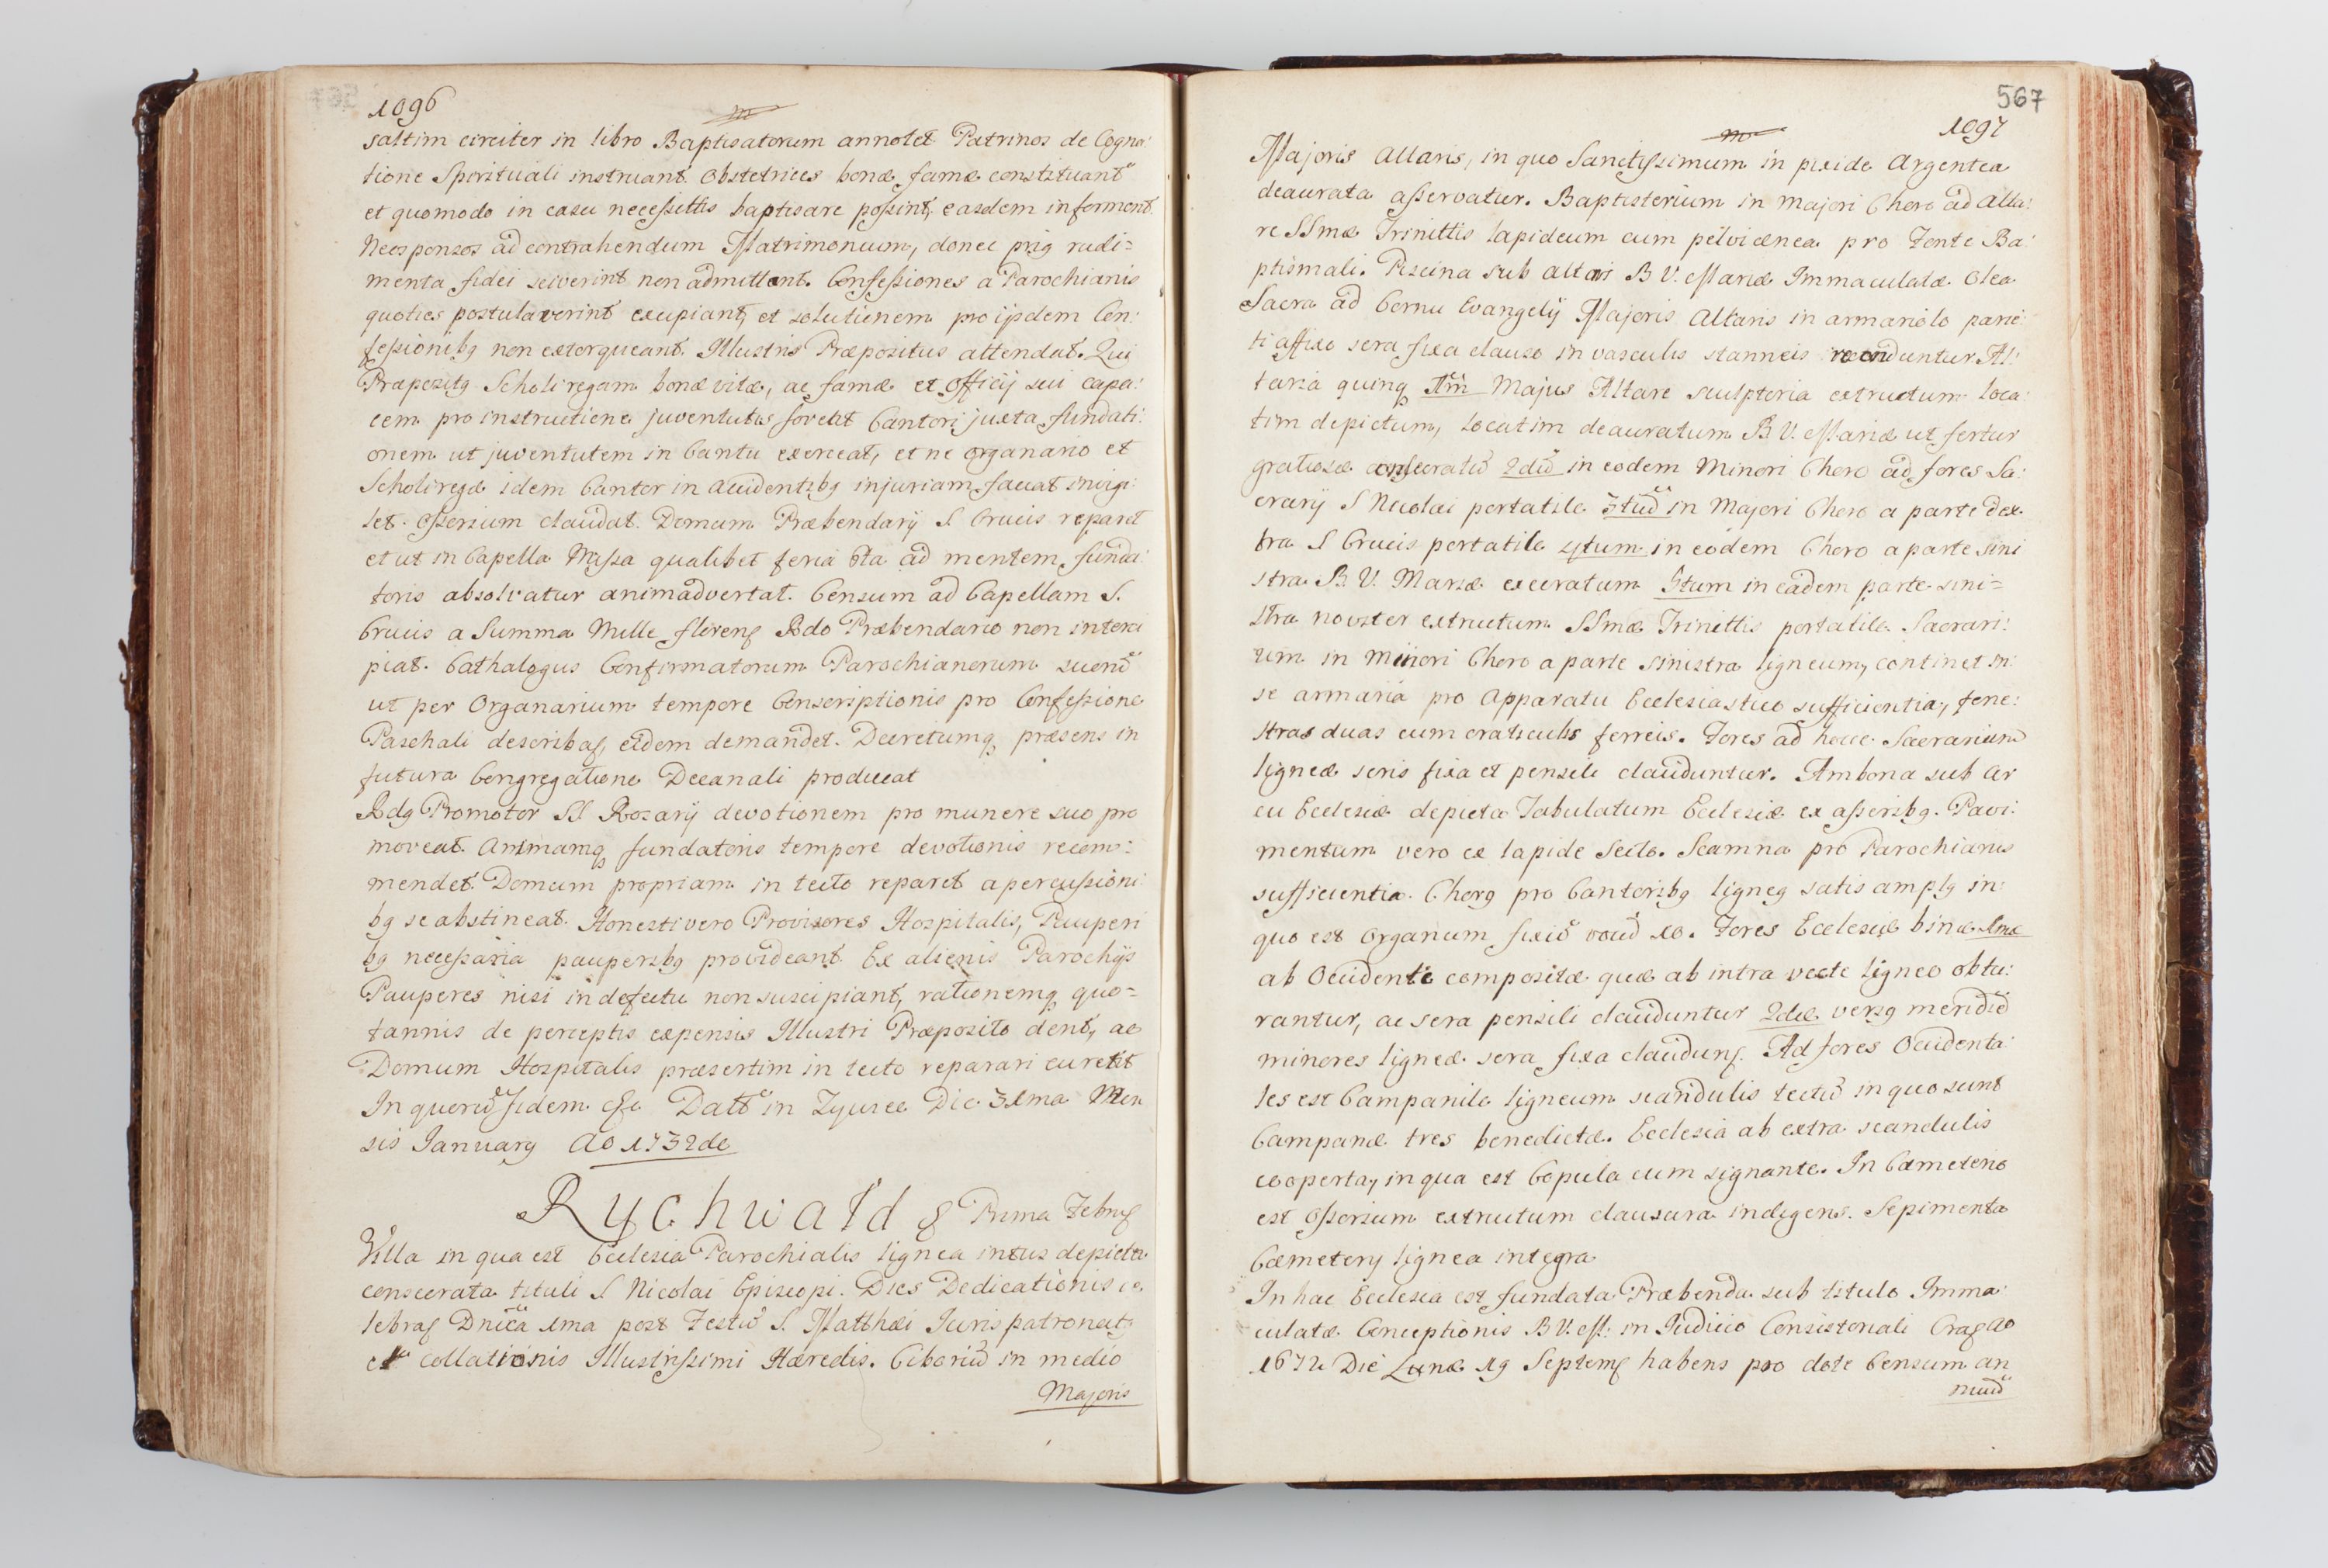 1096
m
saltim circiter in libro Baptisatorum annotet Patrinos de Cogna:
tione Spirituali instruant. Obstetrices bonæ famæ constituant
et quomodo in casu necessittis baptisare possint, easdem informent.
Neosponsos ad contrahendum Matrimonium, donec prig rudi=
menta fidei sciverint non admittant. Confessiones a Parochianis
quoties postulaverint excipiant, et solutionem pro ijsdem Con:
fessionibg non extorqueant. Illustris Præpositus attendat. Qui
Præpositg Scholiregam bonæ vitæ, ac famæ et Officij sui capa:
cem pro instructione juventutis fovebit Cantori juxta fundati:
onem ut juventutem in Cantu exerceat, et ne Organario et
Scholiregæ idem Cantor in accidentibg injuriam faciat invigi:
let. Osserium claudat. Domum Præbendarij S. Crucis reparet
et ut in Capella Missa qualibet feria 6ta ad mentem funda:
toris absolvatur animadvertat. Censum ad Capellam S.
Crucis a Summa Mille floreng Rdo Præbendario non interci
piat. Cathalogus Confirmatorum Parochianorum suorũ
ut per Organarium tempore Conscriptionis pro Confessione
Paschali describaʃ, eidem demandet. Decretumq præsens in
futura Congregatione Decanali producat
Rdg Promotor SS Rosarij devotionem pro munere suo pro
moveat. Animamq fundatoris tempore devotionis recom:
mendet. Domum propriam in tecto reparet a percussioni:
bg se abstineat. Honesti vero Provisores Hospitalis, Pauperi
bg necessaria pauperibg provideant. Ex alienis Parochijs
Pauperes nisi in defectu non suscipiant, rationemq quo=
tannis de perceptis expensis Illustri Præposito dent, ac
Domum Hospitalis præsertim in tecto reparari curebit
In quorũ fidem &c Datt in Zyurce Die 31ma Men
sis Januarij Ao 1732do
Rychwałd & Prima Febrʃ
Villa in qua est Ecclesia Parochialis lignea intus depicta
consecrata tituli S Nicolai Episcopi. Dies Dedicationis ce
lebraʃ Dnica 1ma post Festũ S. Matthæi Juris patronatg
et collationis Illustrissimi Hæredis. Ciboriũ in medio
Majoris
567
1097
m
Majoris Altaris, in quo Sanctissimum in pixide Argentea
deaurata asservatur. Baptisterium in majori Choro ad Alta:
re SSmæ Trinittis lapideum cum pelvi ænea pro Fonte Ba:
ptismali. Piscina sub altari B V. Mariæ Immaculatæ. Olea
Sacra ad Cornu Evangelij Majoris Altaris in armariolo parie:
ti affixo sera fixa clauso in vasculis stanneis reconduntur Al:
taria quinq 1m Majus Altare sculptoria extructum loca:
tim depictum, locatim deauratum B V. Mariæ ut fertur
gratiosæ consecratũ 2dũ in eodem Minori Choro ad fores Sa:
crarij S Nicolai portatile 3tiũ in Majori Choro a parte dex
tra S Crucis portatile 4tum in eodem Choro a parte sini
stra B. V. Mariæ execratum 5tum in eadem parte sini=
stra noviter extructum SSmæ Trinittis portatile. Sacrari:
um in Minori Choro a parte sinistra ligneum, continet in
se armaria pro Apparatu Ecclesiastico sufficientia, fene:
stras duas cum craticulis ferreis. Fores ad hocce Sacrarium
ligneæ seris fixa et pensili clauduntur. Ambona sub Ar
cu Ecclesiæ depicta Tabulatum Ecclesiæ ex asseribg. Pavi:
mentum vero ex lapide Secto. Scamna pro Parochianis
sufficientia. Chorg pro Cantoribg ligneg satis amplg in
quo est Organum fixũ vocũ 10. Fores Ecclesiæ binæ 1mæ
ab Occidente compositæ quæ ab intra vecte ligneo obtu:
rantur, ac sera pensili clauduntur 2dæ versg meridiẽ
minores ligneæ sera fixa claudunʃ. Ad fores Occidenta:
les est Campanile ligneum scandulis tectũ in quo sunt
Campanæ tres benedictæ. Ecclesia ab extra scandulis
cooperta, in qua est Copula cum signante. In Cæmeterio
est Osserium extructum clausura indigens. Sepimenta
Cæmeterij lignea integra
In hac Ecclesia est fundata Præbenda sub titulo Imma:
culatæ Conceptionis B V. M: in Judicio Consistoriali Craʃ Ao
1672 Die Lunæ 19 Septemʃ habens pro dote Censum an
nuũ